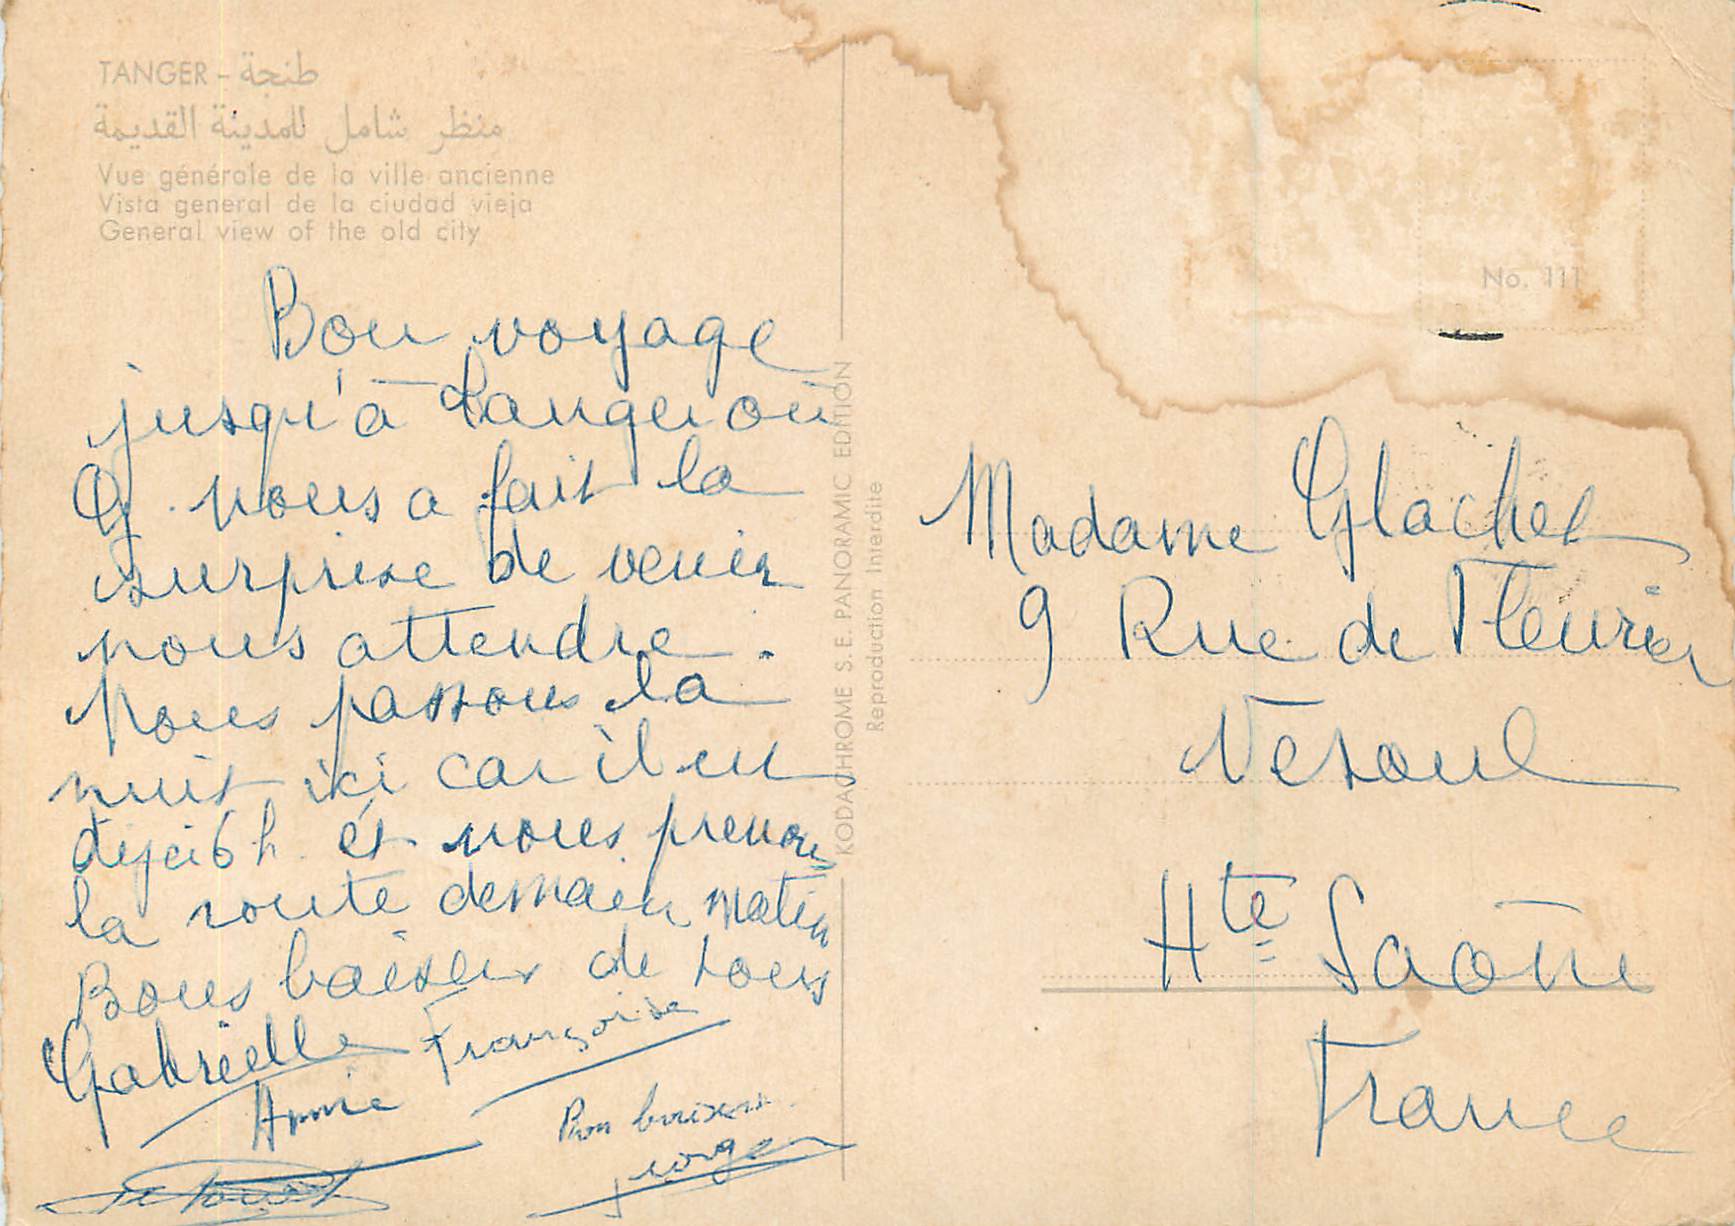 TANGER - طنجة
منظر شامل للمدينة القديمة
Vue générale de la ville ancienne
Vista general de la ciudad vieja
General view of the old city
Bon voyage
jusqu'à Tanger où
G. nous a fait la
surprise de venir
nous attendre.
Nous passons la
nuit ici car il est
déjà 6 h et nous prenons
la route demain matin
Bons baisers de tous
Gabrielle Françoise
Annie
Bon baisers
KODACHROME S.E. PANORAMIC EDITION
Reproduction Interdite
No. 111
Madame Glachet
9 Rue de Fleurier
Vesoul
Hte Saône
France